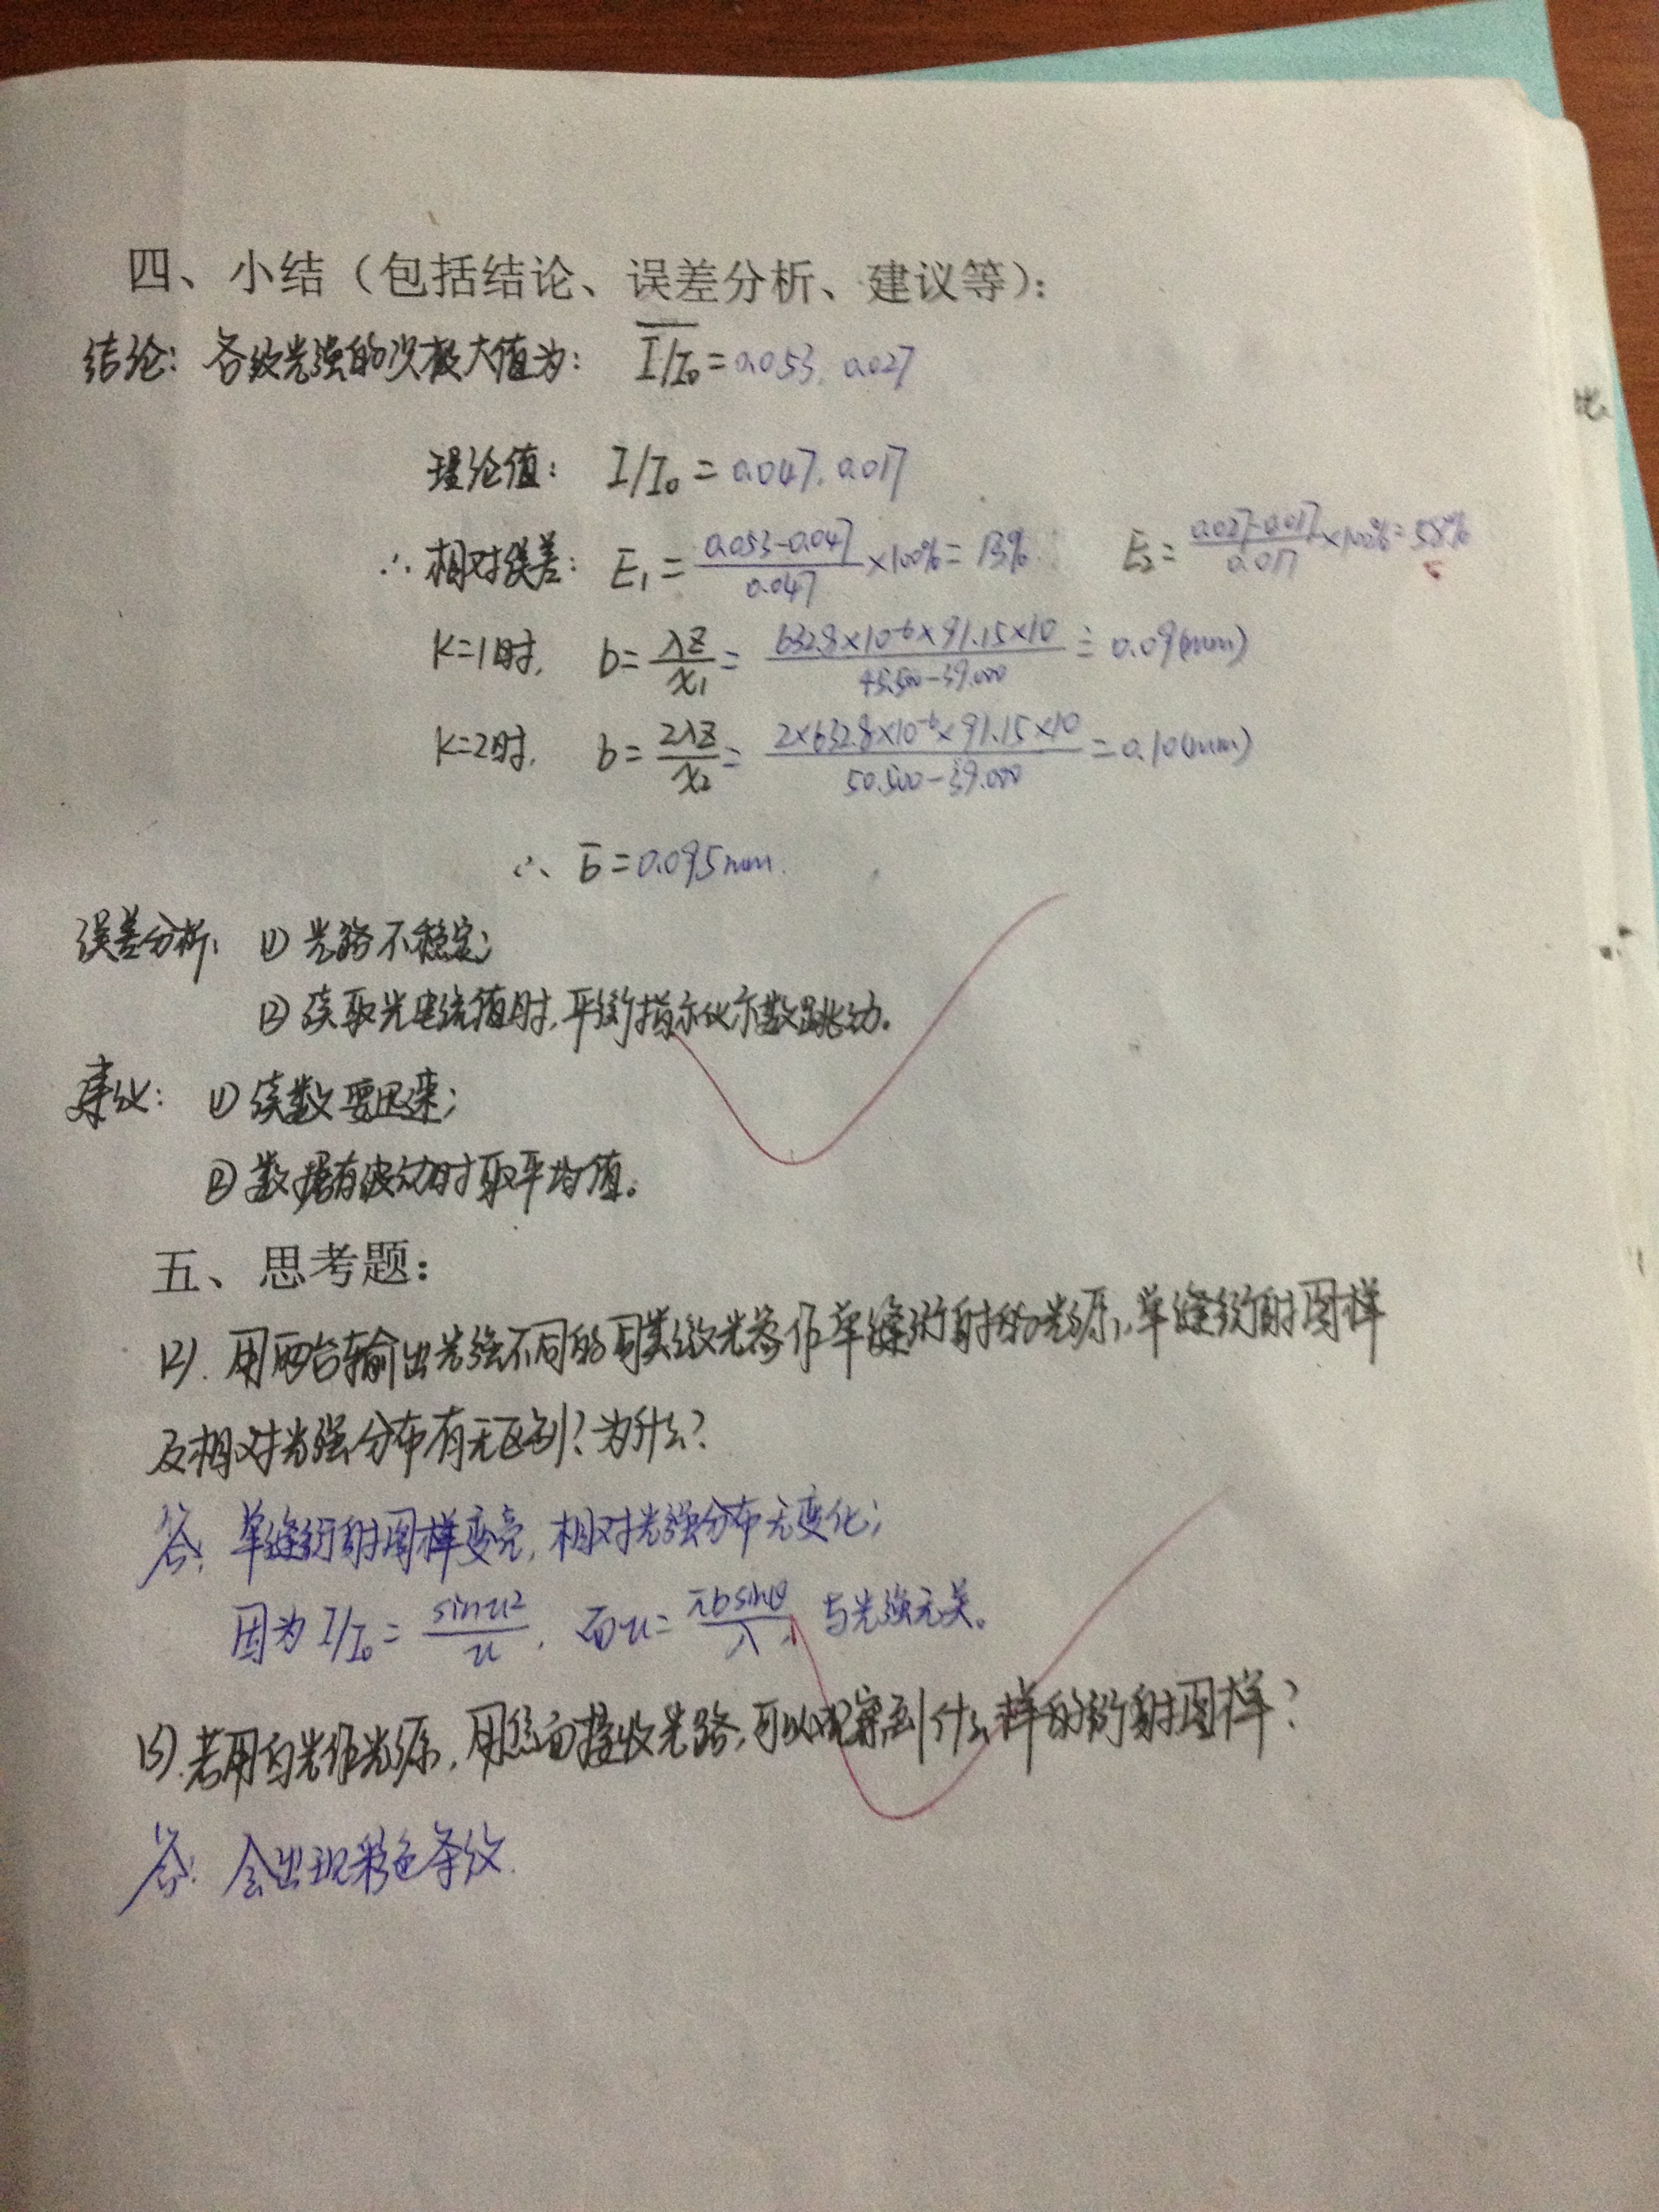 四、小结（包括结论、误差分析、建议等）：
结论：各级光强的次极大值为： I/I₀ = 0.053, 0.027
理论值： I/I₀ = 0.047, 0.017
∴相对误差： E₁ = (0.053-0.047)/0.047 ×100% = 13% E₂ = (0.027-0.017)/0.017 ×100% = 58%
K=1时, b = λZ/x₁ = (632.8×10⁻⁶×91.15×10)/(45.500-39.000) ≐ 0.09(mm)
K=2时, b = 2λZ/x₂ = (2×632.8×10⁻⁶×91.15×10)/(50.500-39.000) = 0.10(mm)
∴ b̄ = 0.095mm.
误差分析： ① 光路不稳定；
② 读取光电流值时,平衡指示仪示数跳动。
建议： ① 读数要迅速；
② 数据有波动时取平均值。
五、思考题：
(2). 用两台输出光强不同的同类激光器作单缝衍射的光源,单缝衍射图样
及相对光强分布有无区别？为什么？
答：单缝衍射图样变亮, 相对光强分布无变化；
因为 I/I₀ = sinu²/u , 而u = πbsinθ/λ 与光强无关。
(3). 若用白光作光源, 用焦面接收光路,可以观察到什么样的衍射图样？
答：会出现彩色条纹.